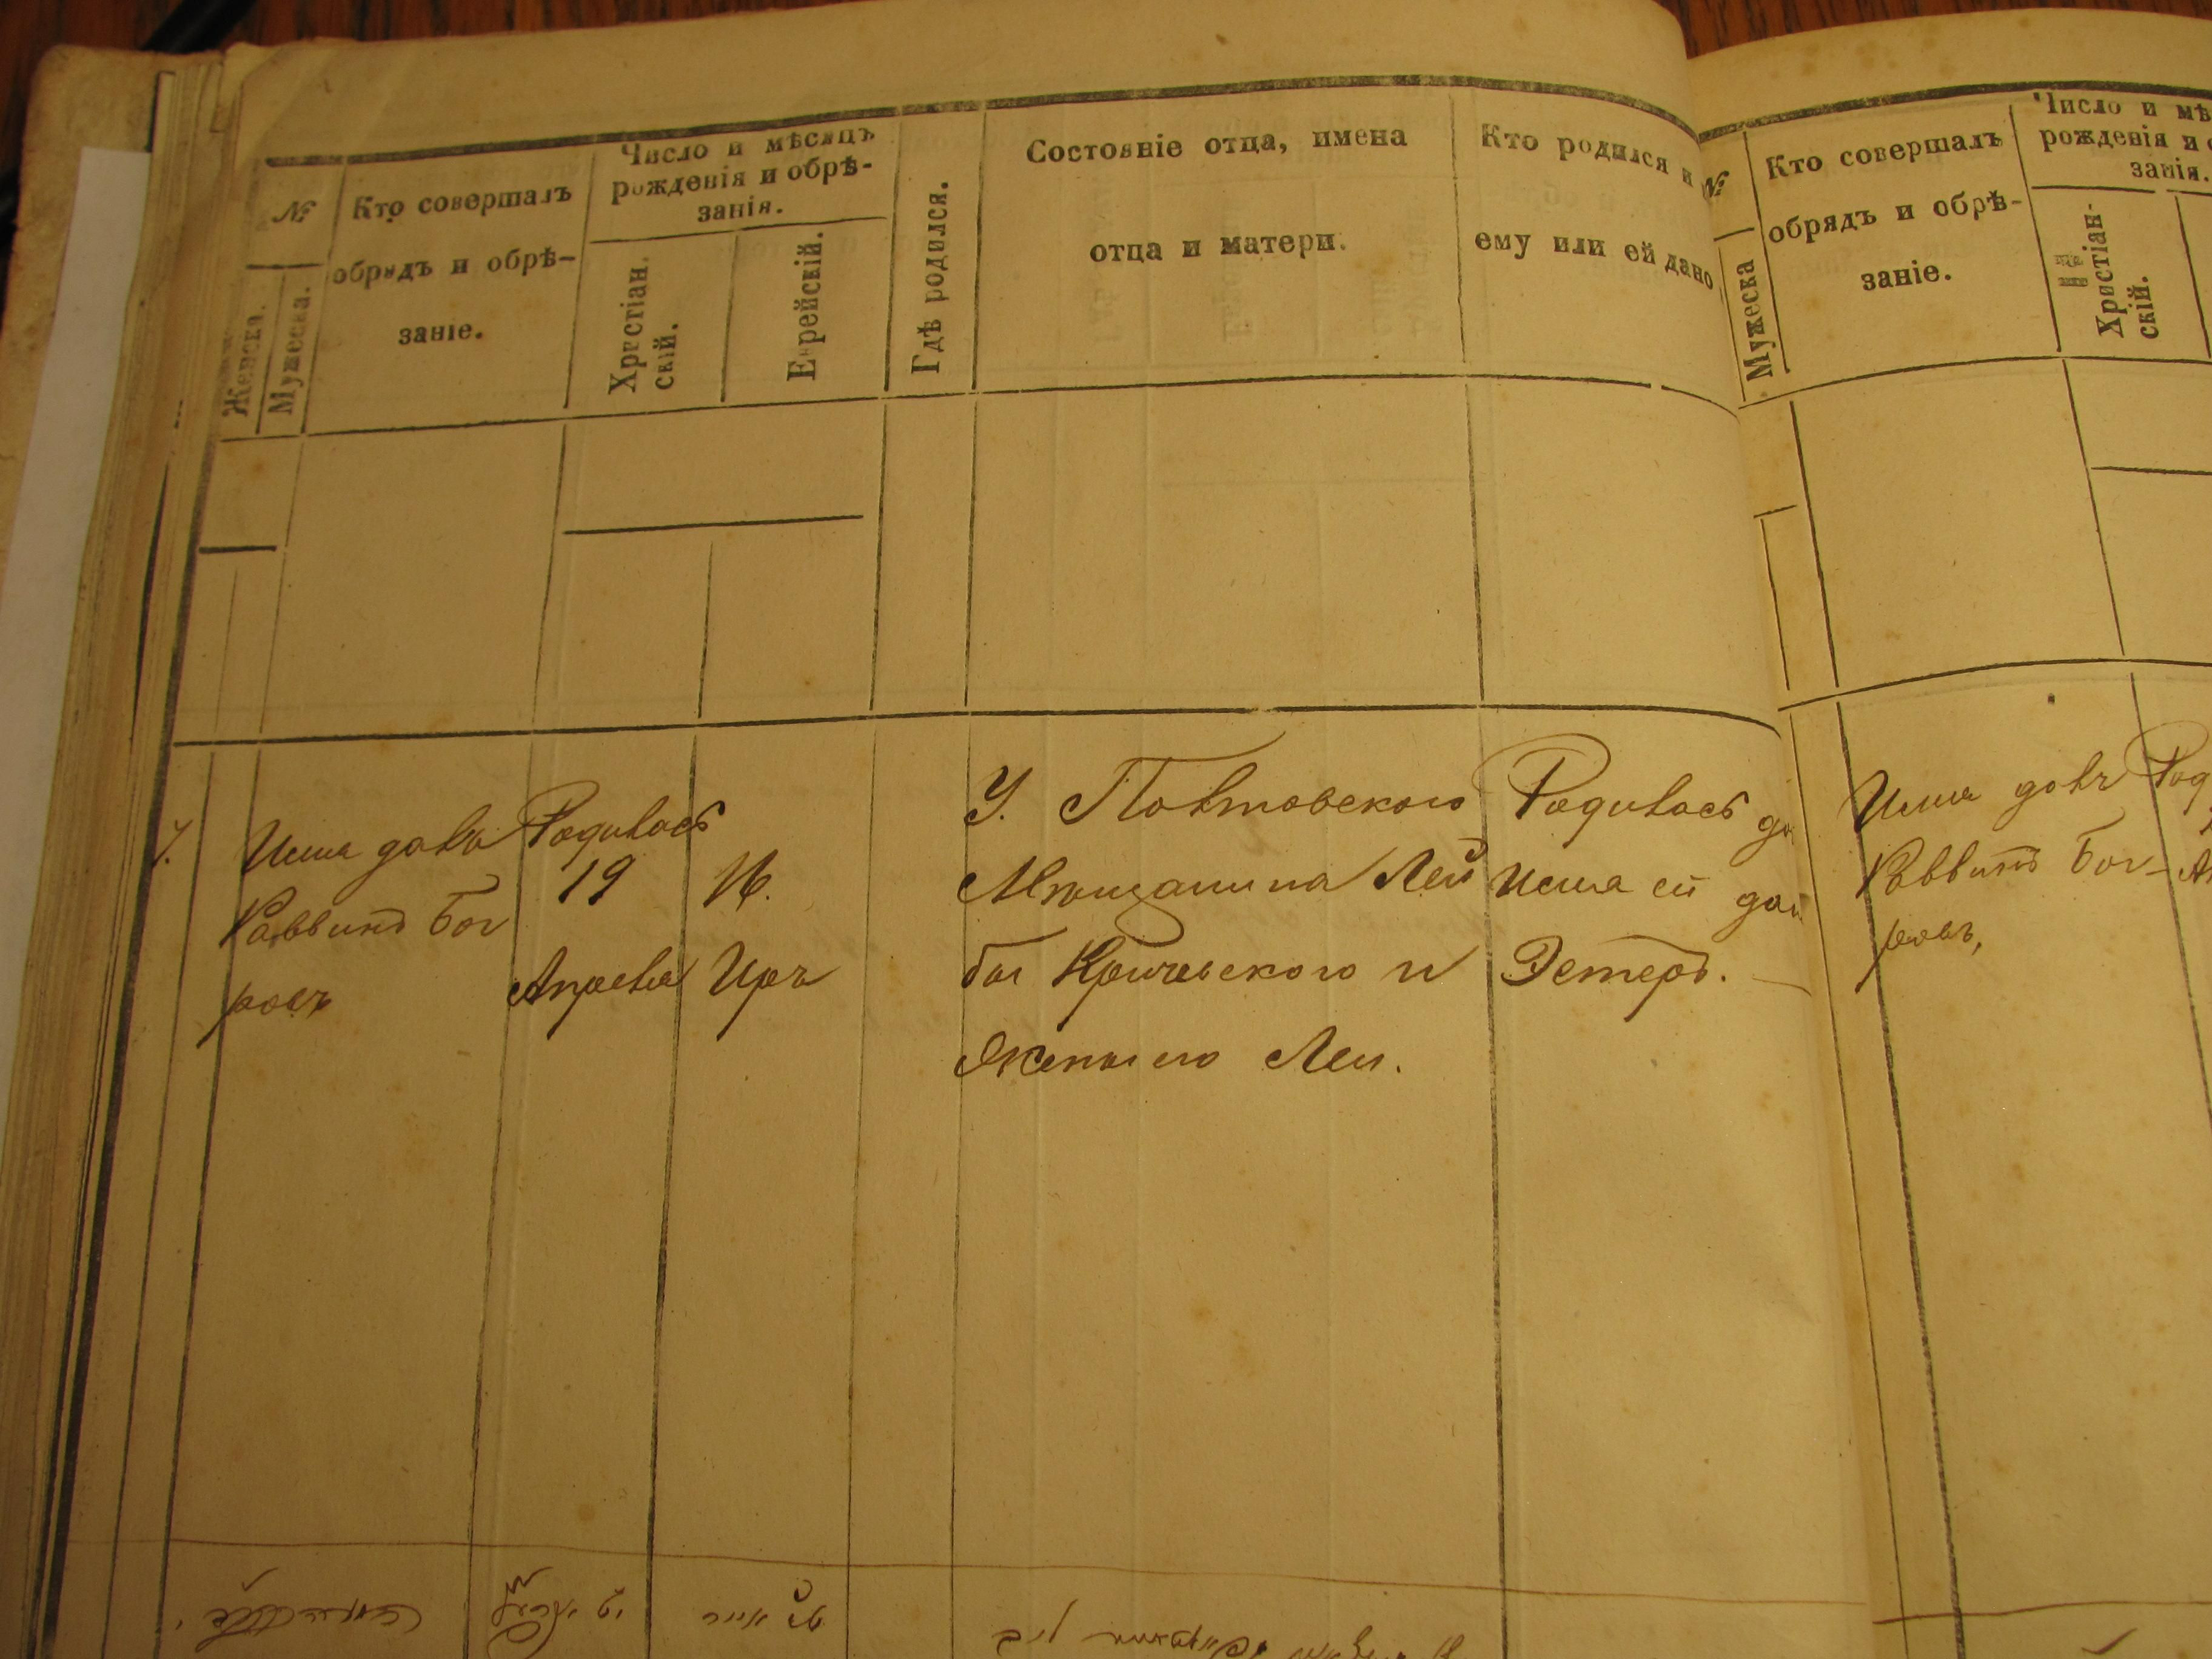 №
Женска.
Мужеска.
Кто совершалъ
обрядъ и обрѣ-
заніе.
Число и мѣсяцъ
рожденія и обрѣ-
занія.
Христіан.
скій.
Еврейскій.
Гдѣ родился.
Состояніе отца, имена
отца и матери.
Кто родился и
ему или ей дано
7.
Имя далъ
Раввинъ Бог
ровъ
Родилась
19
Апреля
16.
Иръ
У. Полтовского
Мѣщанина Лей
бы Кричевского и
Жены его Леи.
Родилась до
Имя ей дан
Эстеръ.
№
Мужеска
Кто совершалъ
обрядъ и обрѣ-
заніе.
Число и мѣ
рожденія и о
занія.
Христіан-
скій.
Имя далъ
Раввинъ Бог-
ровъ,
Род
Ап